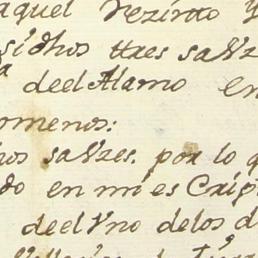 aquel rezinto y
sidhos ttres salvz
deel Alamo en
omenos:
hos salvzes. por lo q
do en mi es Crip
deel Vno delos d